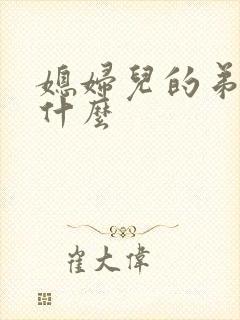 媳婦兒的弟
什麼
崔大偉